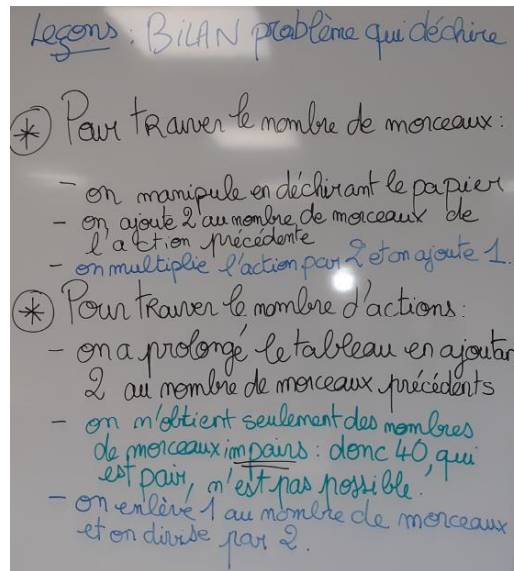 Leçons : BILAN problème qui déchire
* Pour trouver le nombre de morceaux :
- on manipule en déchirant le papier
- on ajoute 2 au nombre de morceaux de
l'action précédente
- on multiplie l'action par 2 et on ajoute 1.
* Pour trouver le nombre d'actions :
- on a prolongé le tableau en ajoutan
2 au nombre de morceaux précédents
- on n'obtient seulement des nombres
de morceaux impairs : donc 40, qui
est pair, n'est pas possible.
- on enlève 1 au nombre de morceaux
et on divise par 2.